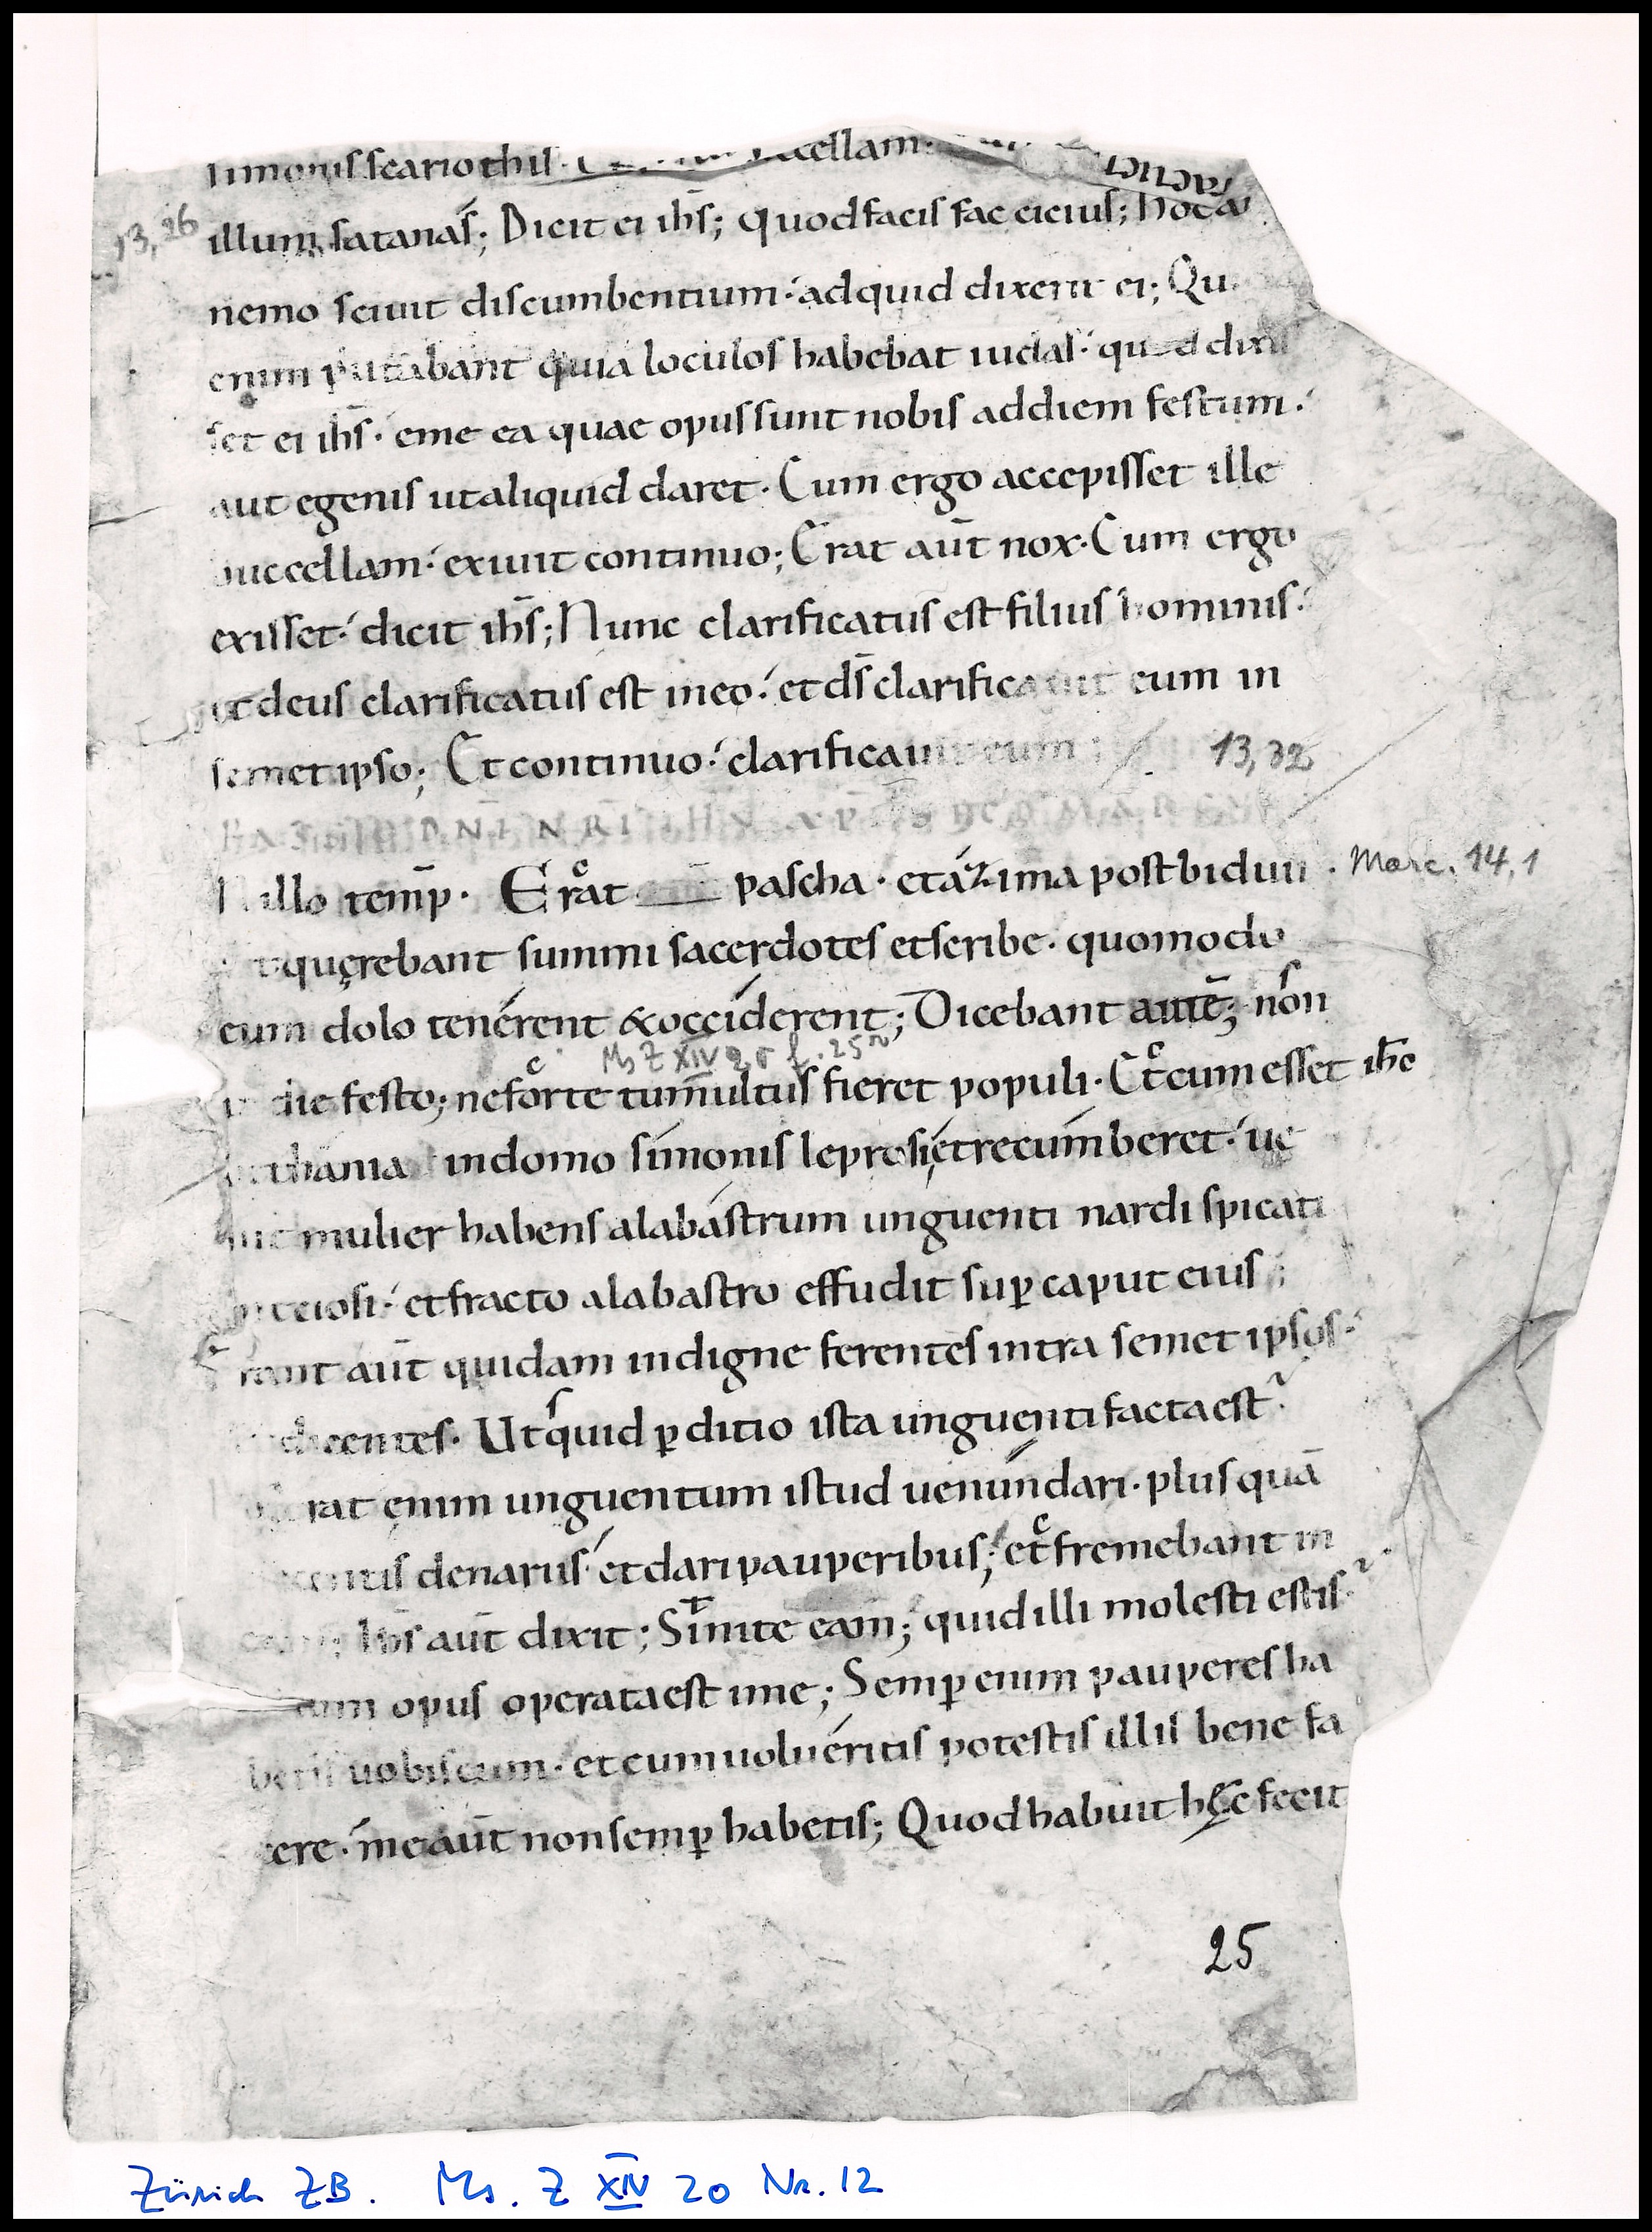 simonis scariothis. buccellam.
13,26
illum satanas; Dicit ei ihs̄; quod facis fac cicius; hoc a
nemo sciuit discumbentium. ad quid dixerit ei; Qui
enim putabant quia loculos habebat iudas. quod dixis
set ei ihs̄. eme ea quae opus sunt nobis ad diem festum.
aut egenis ut aliquid daret. Cum ergo accepisset ille
buccellam. exiuit continuo; Erat aūt nox. Cum ergo
exisset. dicit ihs̄; Nunc clarificatus est filius hominis.
et deus clarificatus est in eo. et ds̄ clarificauit eum in
semet ipso; Et continuo. clarificauit eum; 13,32
PASSIO DNI NRI IHV XPI SCD MARCVM
N illo temp̄. Erat pascha. et azima post biduu . Marc. 14,1
et quęrebant summi sacerdotes et scribe. quomodo
eum dolo tenerent & occiderent; Dicebant autē; non
in die festo; ne forte tumultus fieret populi. Et cum esset ihc̄
Ms Z XIV 20 f. 25r
bethania in domo simonis leprosi, et recumberet. ue
nit mulier habens alabastrum unguenti nardi spicati
preciosi. et fracto alabastro effudit sup̱ caput eius;
Erant aūt quidam indigne ferentes intra semet ipsos.
et dicentes. Ut quid p̱ditio ista unguenti facta est.
rat enim unguentum istud uenundari. plus quā
centis denariis. et dari pauperibus; et fremebant in
eam; Ihs̄ aūt dixit; Sinite eam; quid illi molesti estis.
opus operata est in me; Semp̱ enim pauperes ha
betis uobiscum. et cum uolueritis potestis illis bene fa
cere. me aūt non semp̱ habetis; Quod habuit hęc fecit
25
Zürich ZB. Ms. Z XIV 20 Nr. 12